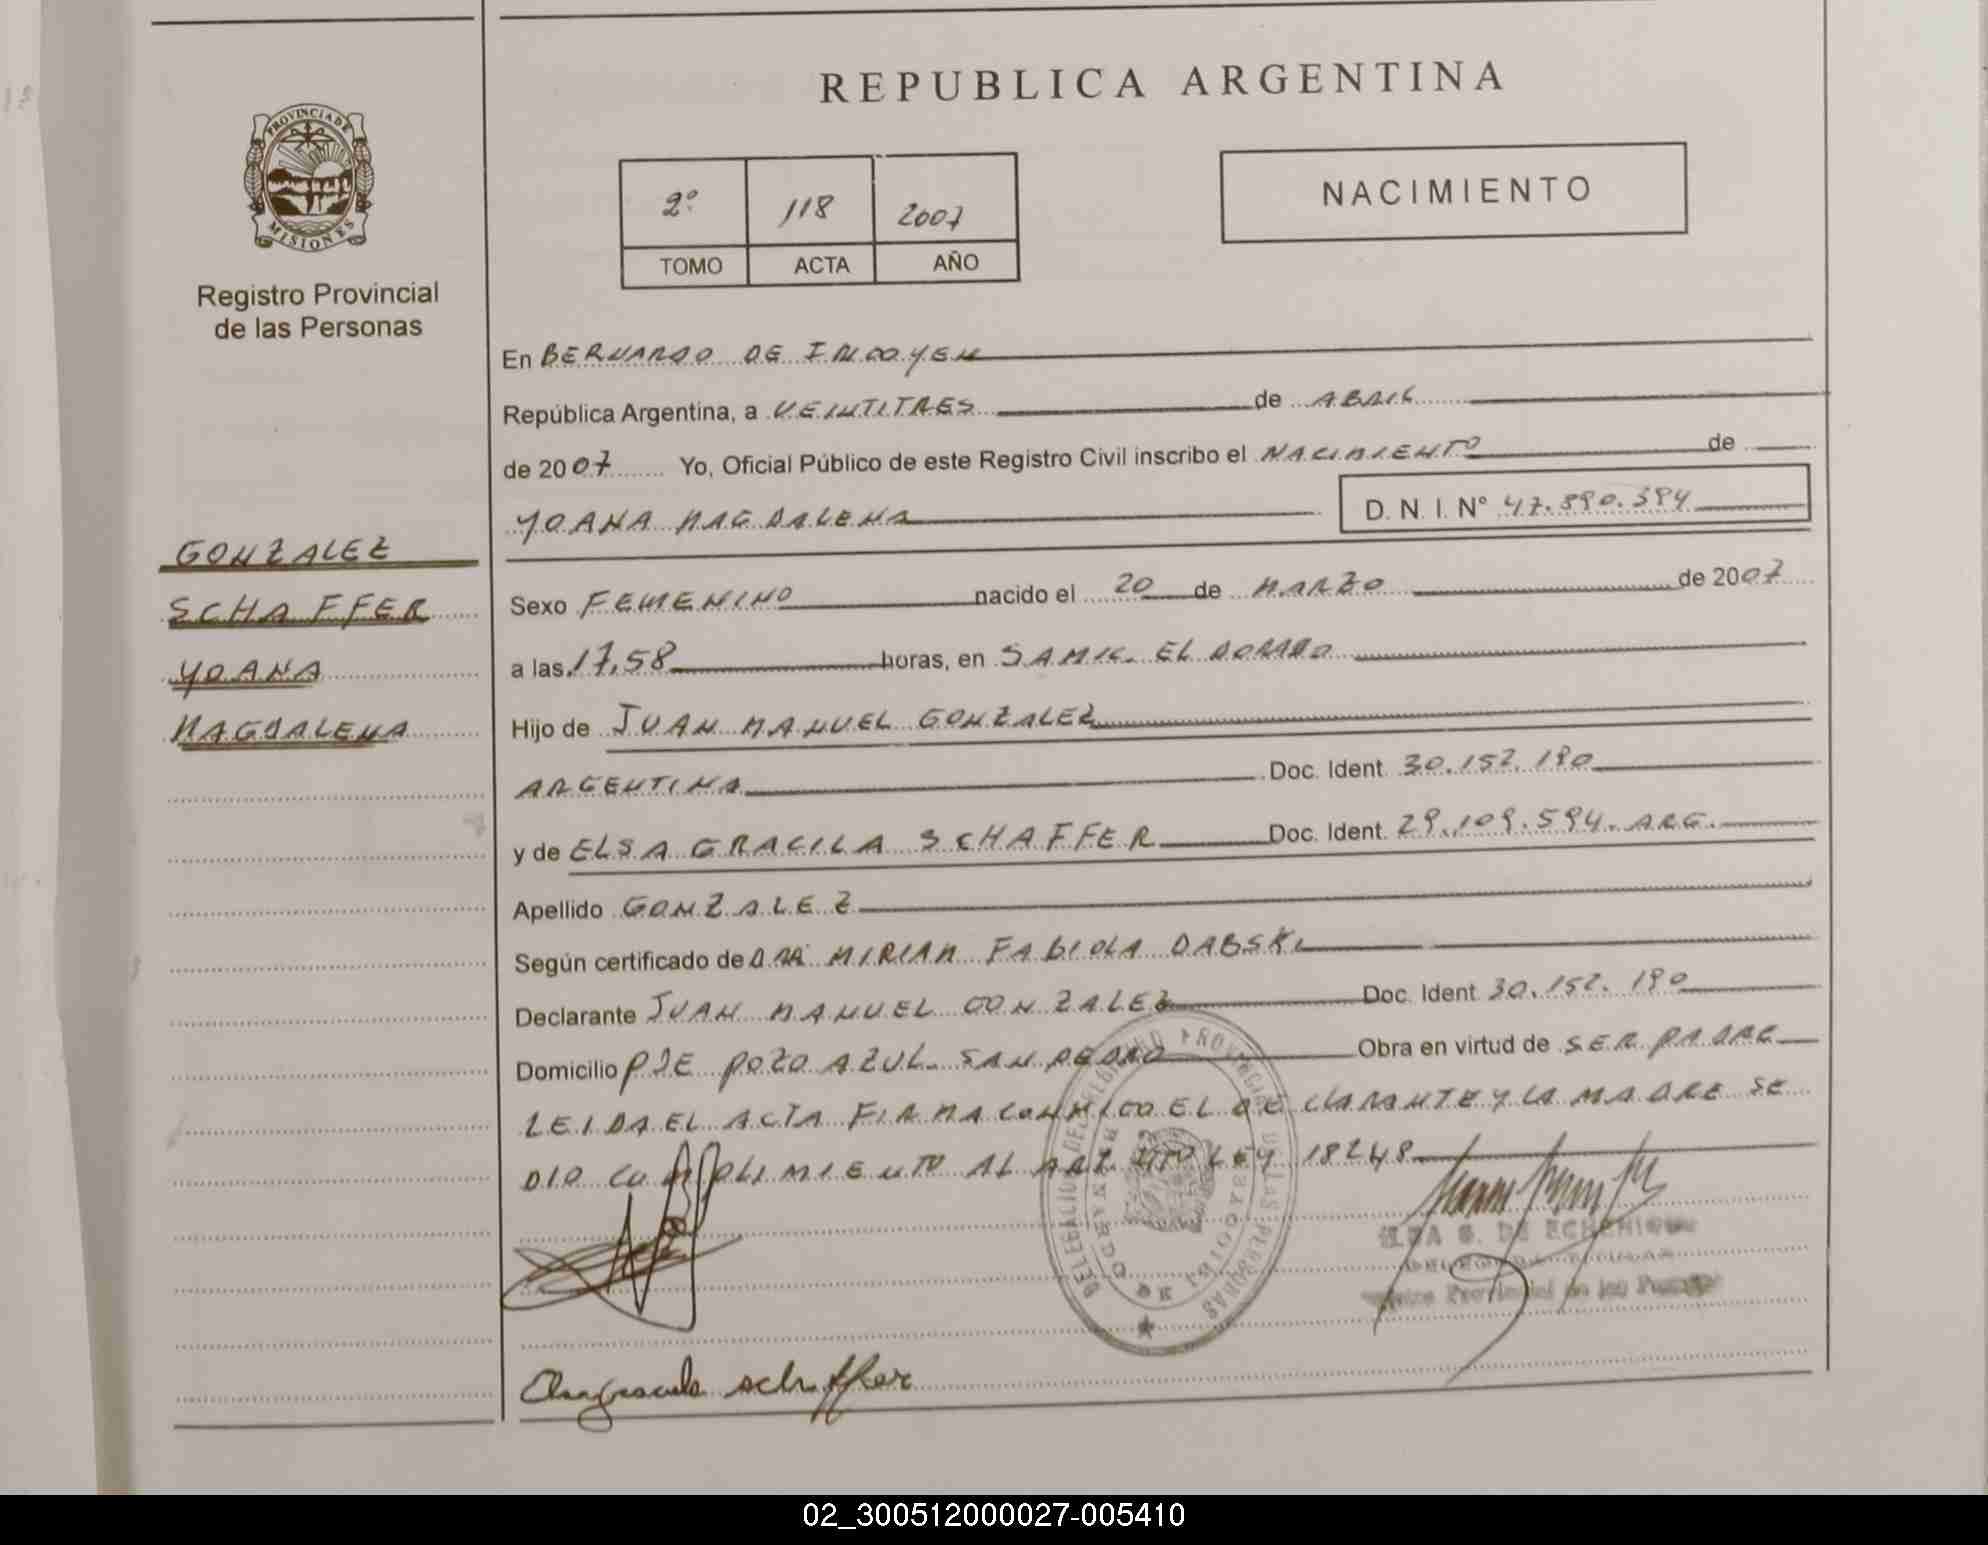 REPUBLICA ARGENTINA
PROVINCIA DE MISIONES
Registro Provincial
de las Personas
2º 118 2007
TOMO ACTA AÑO
NACIMIENTO
En BERNARDO DE IRIGOYEN
República Argentina, a VEINTITRES de ABRIL
de 2007 Yo, Oficial Público de este Registro Civil inscribo el NACIMIENTO de
YOANA MAGDALENA D. N. I. Nº 47.890.394
GONZALEZ
SCHAFFER
YOANA
MAGDALENA
Sexo FEMENINO nacido el 20 de MARZO de 2007
a las 17,58 horas, en SAMIC. EL DORADO
Hijo de JUAN MANUEL GONZALEZ
ARGENTINA Doc. Ident. 30.152.190
y de ELSA GRACILA SCHAFFER Doc. Ident. 29.109.594. ARG.
Apellido GONZALEZ
Según certificado de DRA MIRIAM FABIOLA DABSKI
Declarante JUAN MANUEL GONZALEZ Doc. Ident. 30.152.190
Domicilio PJE POZO AZUL. SAN PEDRO Obra en virtud de SER PADRE
LEIDA EL ACTA FIRMA CONMIGO EL DECLARANTE Y LA MADRE SE
DIO CUMPLIMIENTO AL ART. LEY 18248
DELEGACION DEL REGISTRO PROVINCIAL DE LAS PERSONAS
DE ECHENIQUE
Provincial de las
schaffer
02_300512000027-005410